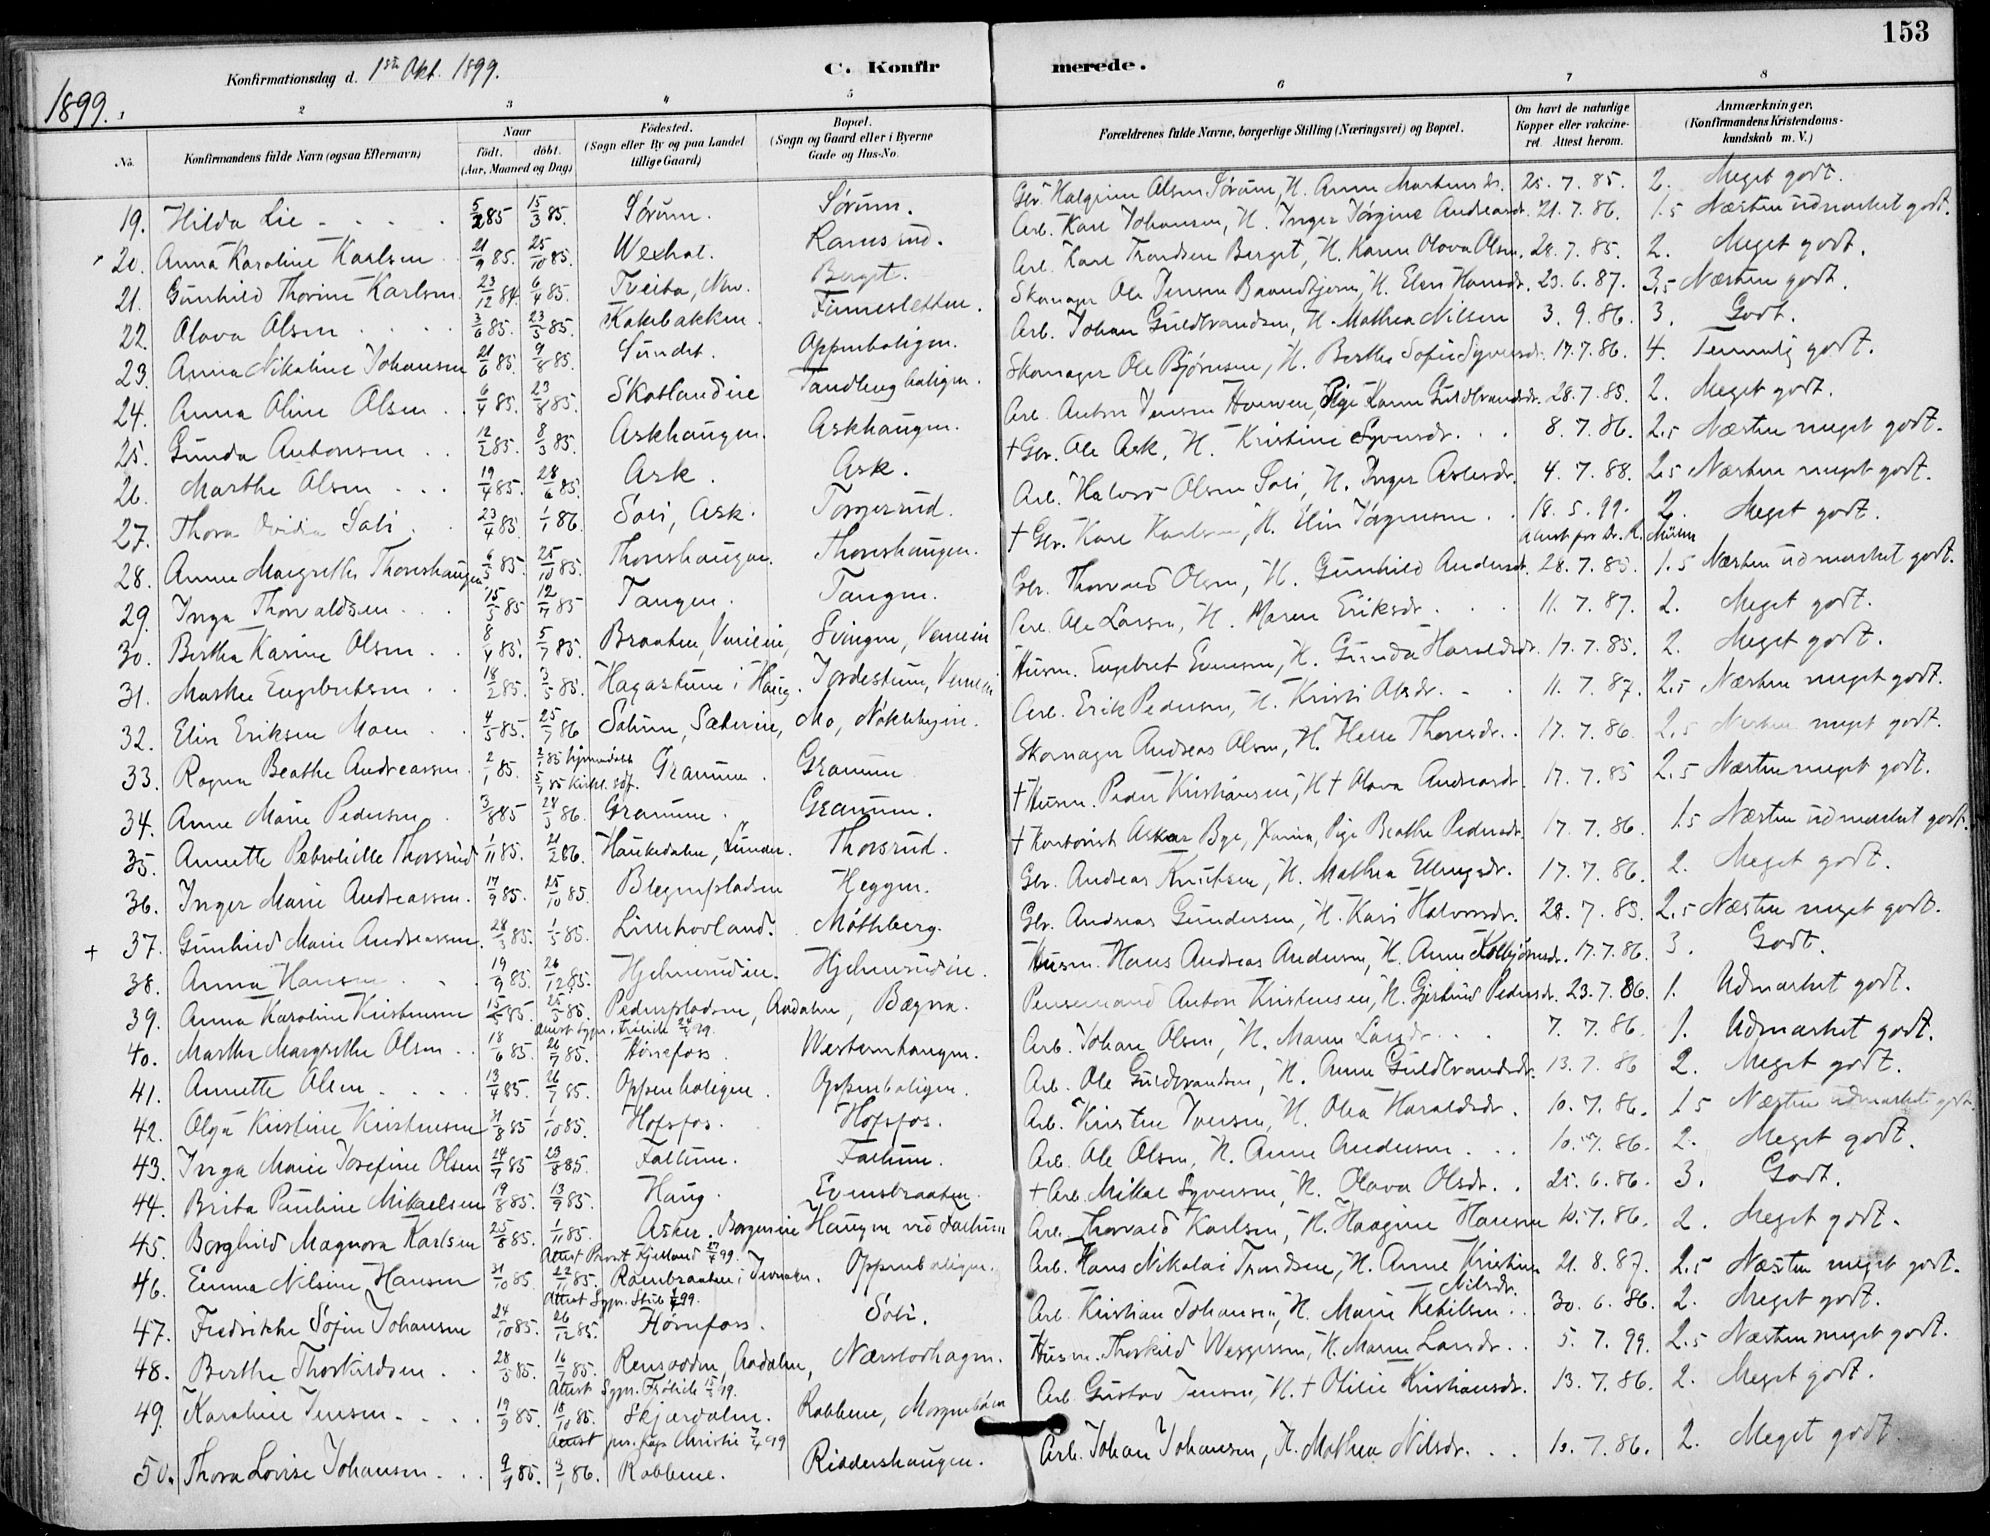 153
Konfirmationsdag d. 1ste Okt. 1899.
C. Konfirmerede.
1899.
1 2 3 4 5 6 7 8
No. Konfirmandens fulde Navn (ogsaa Efternavn) Naar født. døbt. (Aar, Maaned og Dag) Fødested. (Sogn eller By og paa Landet tillige Gaard) Bopæl. (Sogn og Gaard eller i Byerne Gade og Hus-No. Forældrenes fulde Navne, borgerlige Stilling (Næringsvei) og Bopæl. Om havt de naturlige Kopper eller vakcineret. Attest herom. Anmærkninger, (Konfirmandens Kristendomskundskab m. V.)
19. Hilda Lie 5/2 85 15/3 85. Sørum. Sørum. Gbr. Halgrim Olsen Sørum, H. Anne Martinsdr. 25. 7. 85. 2. Meget godt.
20. Anna Karoline Karlsen 21/9 85. 25/10 85. Wexhal. Ramsrud. Arb. Karl Johansen, H. Inger Jørgine Andreasdr. 21. 7. 86. 1.5 Næsten udmærket godt.
21. Gunhild Thorine Karlsen 23/12 84. 6/4 85. Tveita, Berget. Arb. Karl Trondsen Berget, H. Karen Olava Olsen. 28. 7. 85. 2. Meget godt.
22. Olava Olsen 3/6 85. 23/5 85. Kakebakken. Finnesletten. Skomager Ole Jensen H. Elen Hansdr. 23. 6. 87. 3.5 Næsten godt.
23. Anna Nikoline Johansen 21/6 85. 9/8 85. Sundet. Oppenboligen. Arb. Johan Guldbrandsen, H. Mathea Nilsen 3. 9. 86. 3. Godt.
24. Anna Oline Olsen 6/4 85. 23/8 85. Skotlandiie Tandbergboligen. Skomager Ole Bjørnsen, H. Berthe Sofie Syversdr. 17. 7. 86. 4. Temmelig godt.
25. Gunda Antonsen 12/2 85. 8/3 85. Askhaugen. Askhaugen. Arb. Anton Jensen Pige Karen Guldbrandsdr. 28. 7. 85. 2. Meget godt.
26. Marthe Olsen 19/4 85. 28/6 85. Ask. Ask. † Gbr. Ole Ask, H. Kristine Syversdr. 8. 7. 86. 2.5 Næsten meget godt.
27. Thora Ovidia Soli 23/4 85. 1/1 86. Soli, Ask. Torgerud. Arb. Halvor Olsen Soli, H. Inger Aslesdr. 4. 7. 88. 2.5 Næsten meget godt.
28. Anne Margrethe Thoreshaugen 6/5 85. 25/10 85. Thoreshaugen. Thoreshaugen. † Gbr. Karl Karlsen, H. Elin Jørgensen 18. 5. 99. Attest for Dr. R. 2. Meget godt.
29. Inga Thorvaldsen 15/5 85 12/7 85 Tangen. Tangen. Gbr. Thorvald Olsen, H. Gunhild Andersdr. 28. 7. 85. 1.5 Næsten udmærket godt.
30. Berthe Karine Olsen 8/4 85. 5/7 85. Braaten, Veneiie, Svingen, Veneiie Arb. Ole Larsen, H. Maren Eriksdr. 11. 7. 87. 2. Meget godt.
31. Marthe Engebretsen 18/2 85. 3/5 85. Hagastuen i Haug. Jordestuen, Veneiie Husm. Engebret Evensen, H. Gunda Haraldsdr. 17. 7. 85. 2. Meget godt.
32. Elise Eriksen Moen 4/5 85. 25/7 86 Solum, Mo, Nøkleby. Arb. Erik Pedersen, H. Kristi Olsdr. 11. 7. 87. 2.5 Næsten meget godt.
33. Ragna Beathe Andreassen 2/1 85. 2/7 85 hjemmedøbt 85 Kirke. Granum. Granum Skomager Andreas Olsen, H. Helle Thorsdr. 17. 7. 86. 2.5 Næsten meget godt.
34. Anne Marie Pedersen 3/8 85 28/3 86. Granum. Granum. † Husm. Peder Kristiansen, H † Olava Andreasdr. 17. 7. 85 2.5 Næsten meget godt.
35. Annette Petronille Thorsrud 1/11 85. 21/2 86. Haukedalen, Lunder. Thorsrud. † Kontorist Askar Bye, Xania, Pige Beathe Pedersdr. 17. 7. 86. 1.5 Næsten udmærket godt.
36. Inger Marie Andreassen 17/9 85. 25/10 85. Blegenpladsen Heggen. Gbr. Andreas Knutsen, H. Mathea Ellingsdr. 17. 7. 86. 2. Meget godt.
+ 37. Gunhild Marie Andreassen. 28/3 85. 1/5 85. Limhovland. Møthberg. Gbr. Andreas Gundersen, H. Kari Halvorsdr. 28. 7. 85. 2.5 Næsten meget godt.
38. Anna Hansen 19/9 85. 26/12 85. Hjelmrudeie. Hjelmrudeie. Husm. Hans Andreas Andersen, H. Anne Kolbjørnsdr. 17. 7. 86. 3. Godt.
39. Anna Karoline Kristensen 15/5 85. 25/5 85. Pedersplassen, Aadalen, Bægna. Pensemand Anton Kristensen, H. Gjertrud Pedersdr. 23. 7. 86. 1. Udmærket godt.
Attest Sgpr. Frølich 24/9 99.
40. Marthe Margrethe Olsen 18/6 85. 26/7 85. Hønefoss. Westernhaugen. Arb. Johan Olsen, H. Maren Larsdr. 7. 7. 86. 1. Udmærket godt.
41. Annette Olsen 13/4 85. 26/7 85. Oppenboligen. Oppenboligen. Arb. Ole Guldbrandsen, H. Anne Guldbrandsdr. 13. 7. 86 2. Meget godt.
42. Olga Kristine Kristensen 31/8 85 1/10 85. Hofsfos. Hofsfos. Arb. Kristen Iversen, H. Olea Haraldsdr. 10. 7. 86. 1.5 Næsten udmærket godt.
43. Inga Marie Josefine Olsen 24/7 85 23/8 85. Follum. Follum. Arb. Ole Olsen, H. Anne Andersen 10. 7. 86. 2. Meget godt.
44. Brita Pauline Mikaelsen 19/8 85. 13/9 85. Haug. Evensbraaten. † Arb. Mikal Syversen, H. Olava Olsdr. 25. 6. 86. 3. Godt.
45. Borghild Magnora Karlsen 25/8 85. 1/11 85. Asker. Borgeneie Haugen ved Follum Arb. Thorvald Karlsen, H. Haagine Hansen 10. 7. 86. 2. Meget godt.
Attest Provst Kjelland 99.
46. Emma Nilsine Hansen 31/10 85. 22/11 85. i Jevnaker. Oppenboligen. Arb. Hans Nikolai Trondsen, H. Anne Kristine Nilsdr. 21. 8. 87. 2.5 Næsten meget godt.
Attest Sgpr. Stub 99.
47. Fredrikke Sofie Johansen 24/10 85. 26/12 85. Hønefoss. Soli. Arb. Kristian Johansen, H. Marie Ketilsen 30. 6. 86. 2. Meget godt.
48. Berthe Thorkildsen 28/5 85. 16/7 85. Rensvolden, Aadalen, Nærstadhagen. Husm. Thorkild H. Maren Larsdr. 5. 7. 99. 2.5 Næsten meget godt.
Attest Sgpr. Frølich 99.
49. Karoline Jensen 19/9 85. 18/10 85. Skjærdalen. Robbene, Arb. Gustav Jensen, H. † Otilie Kristiansdr. 13. 7. 86. 2. Meget godt.
Attest pers. kap. Christie 99
50. Thora Lovise Johansen 9/9 85. 3/1 86. Robbene. Riddershaugen. Arb. Johan Johansen, H. Mathea Nilsdr. 10. 7. 86. 2. Meget godt.